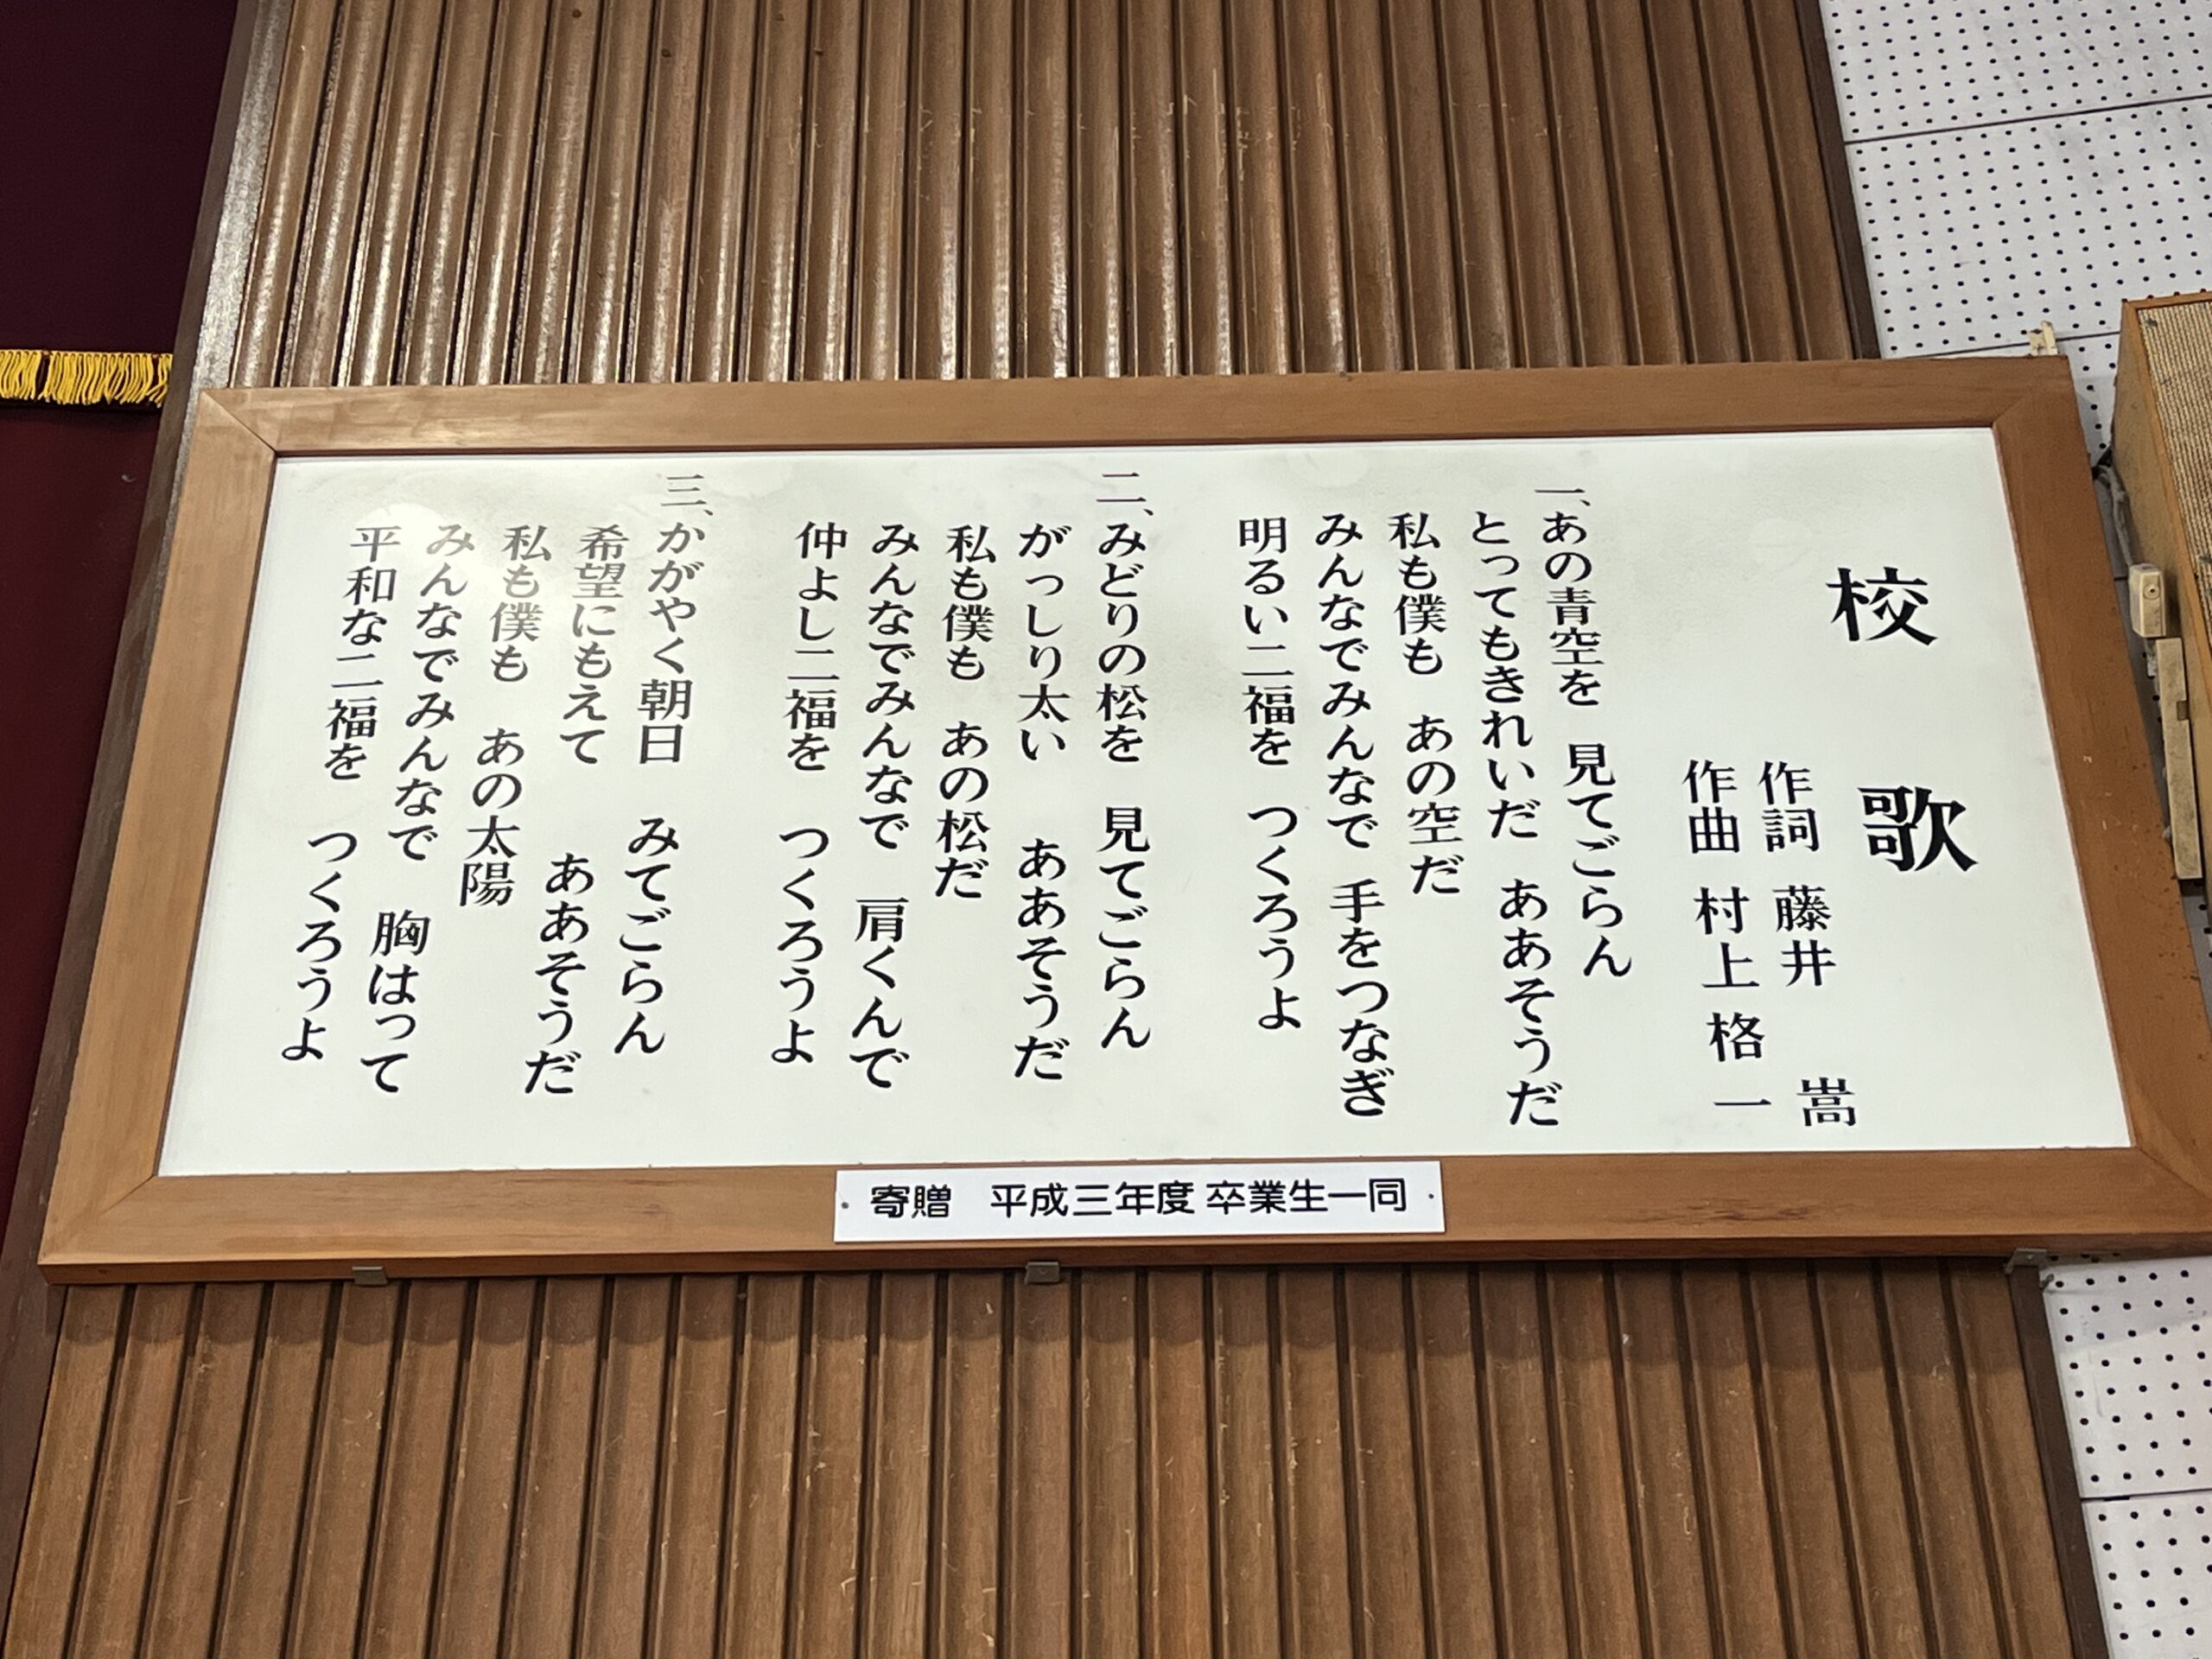 校歌
作詞 藤井 嵩
作曲 村上 格一
一、あの青空を 見てごらん
とってもきれいだ ああそうだ
私も僕も あの空だ
みんなでみんなで 手をつなぎ
明るい二福を つくろうよ
二、みどりの松を 見てごらん
がっしり太い ああそうだ
私も僕も あの松だ
みんなでみんなで 肩くんで
仲よし二福を つくろうよ
三、かがやく朝日 みてごらん
希望にもえて ああそうだ
私も僕も あの太陽
みんなでみんなで 胸はって
平和な二福を つくろうよ
寄贈 平成三年度 卒業生一同